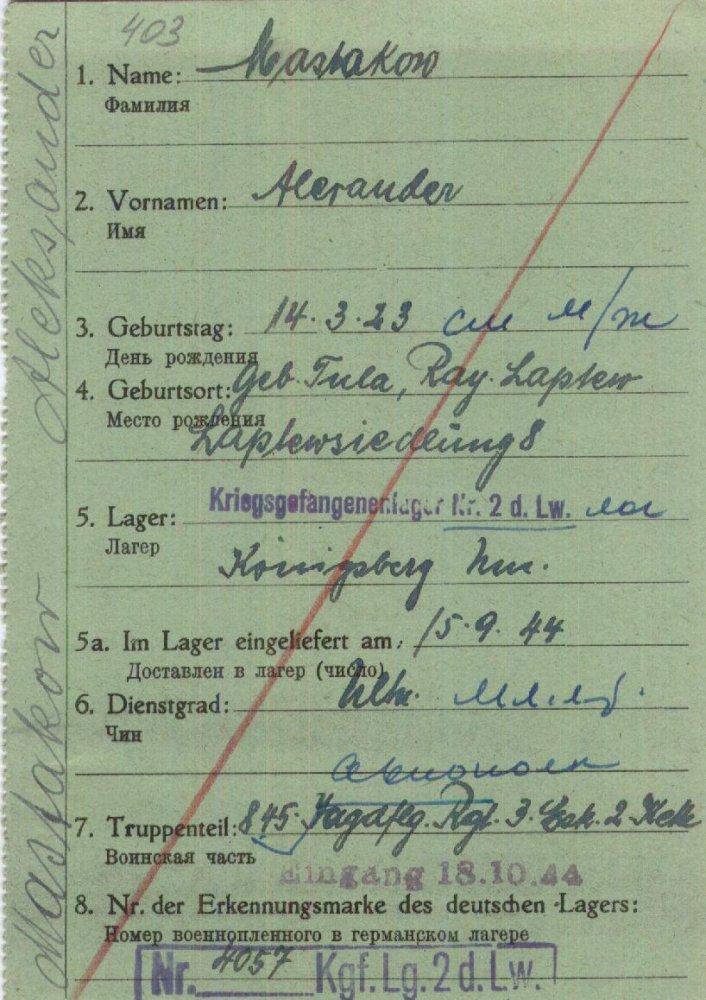 403
1. Name: Mastakow
Фамилия
2. Vornamen: Alexander
Имя
3. Geburtstag: 14.3.23 см м/ж
День рождения
4. Geburtsort: Geb. Tula, Ray. Laptew
Место рождения
Laptewsiedlung 8
Kriegsgefangenenlager Nr. 2 d. Lw.
5. Lager:
Лагер
Königsberg Nm.
5a. Im Lager eingeliefert am: 15.9.44
Доставлен в лагер (число)
6. Dienstgrad: Ultn. мл. л-т.
Чин
авиополк
7. Truppenteil: 845. Jagdflg. Rgt. 3. Esk. 2. Kette
Воинская часть
Eingang 18.10.44
8. Nr. der Erkennungsmarke des deutschen Lagers:
Номер военнопленного в германском лагере
Nr. 4057 Kgf. Lg. 2 d. Lw.
Mastakow Aleksander